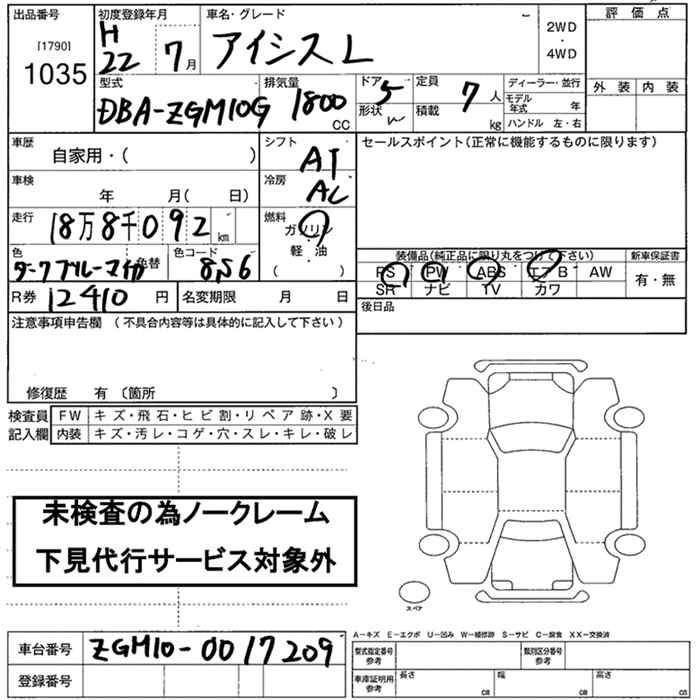 出品番号 初度登録年月 車名・グレード 評価点
[1790] H 2WD
1035 22 7月 アイシス L ・
4WD
型式 排気量 ドア 5 定員 ディーラー・並行 外装 内装
DBA-ZGM10G 1800 CC 形状 W 積載 7人 kg モデル年式 年
ハンドル 左・右
車歴 シフト セールスポイント(正常に機能するものに限ります)
自家用・( ) AT
車検 冷房
年 月( 日) AC
走行 燃料
18万8千092km ガソリン
色 色コード 軽・油 装備品(純正品に限り丸をつけて下さい) 新車保証書
ダークブルーマイカ 色替 8S6 ( ) PS PW ABS エアB AW 有・無
SR ナビ TV カワ
R券 12410円 名変期限 月 日 後日品
注意事項申告欄 (不具合内容等は具体的に記入して下さい)
修復歴 有 〔箇所 〕
検査員 FW キズ・飛石・ヒビ割・リペア跡・X要
記入欄 内装 キズ・汚レ・コゲ・穴・スレ・キレ・破レ
未検査の為ノークレーム
下見代行サービス対象外
スペア
A-キズ E-エクボ U-凹み W-補修跡 S-サビ C-腐食 XX-交換済
車台番号 ZGM10-0017209 型式指定番号 参考 類別区分番号 参考
登録番号 車庫証明用 参考 長さ cm 幅 cm 高さ cm